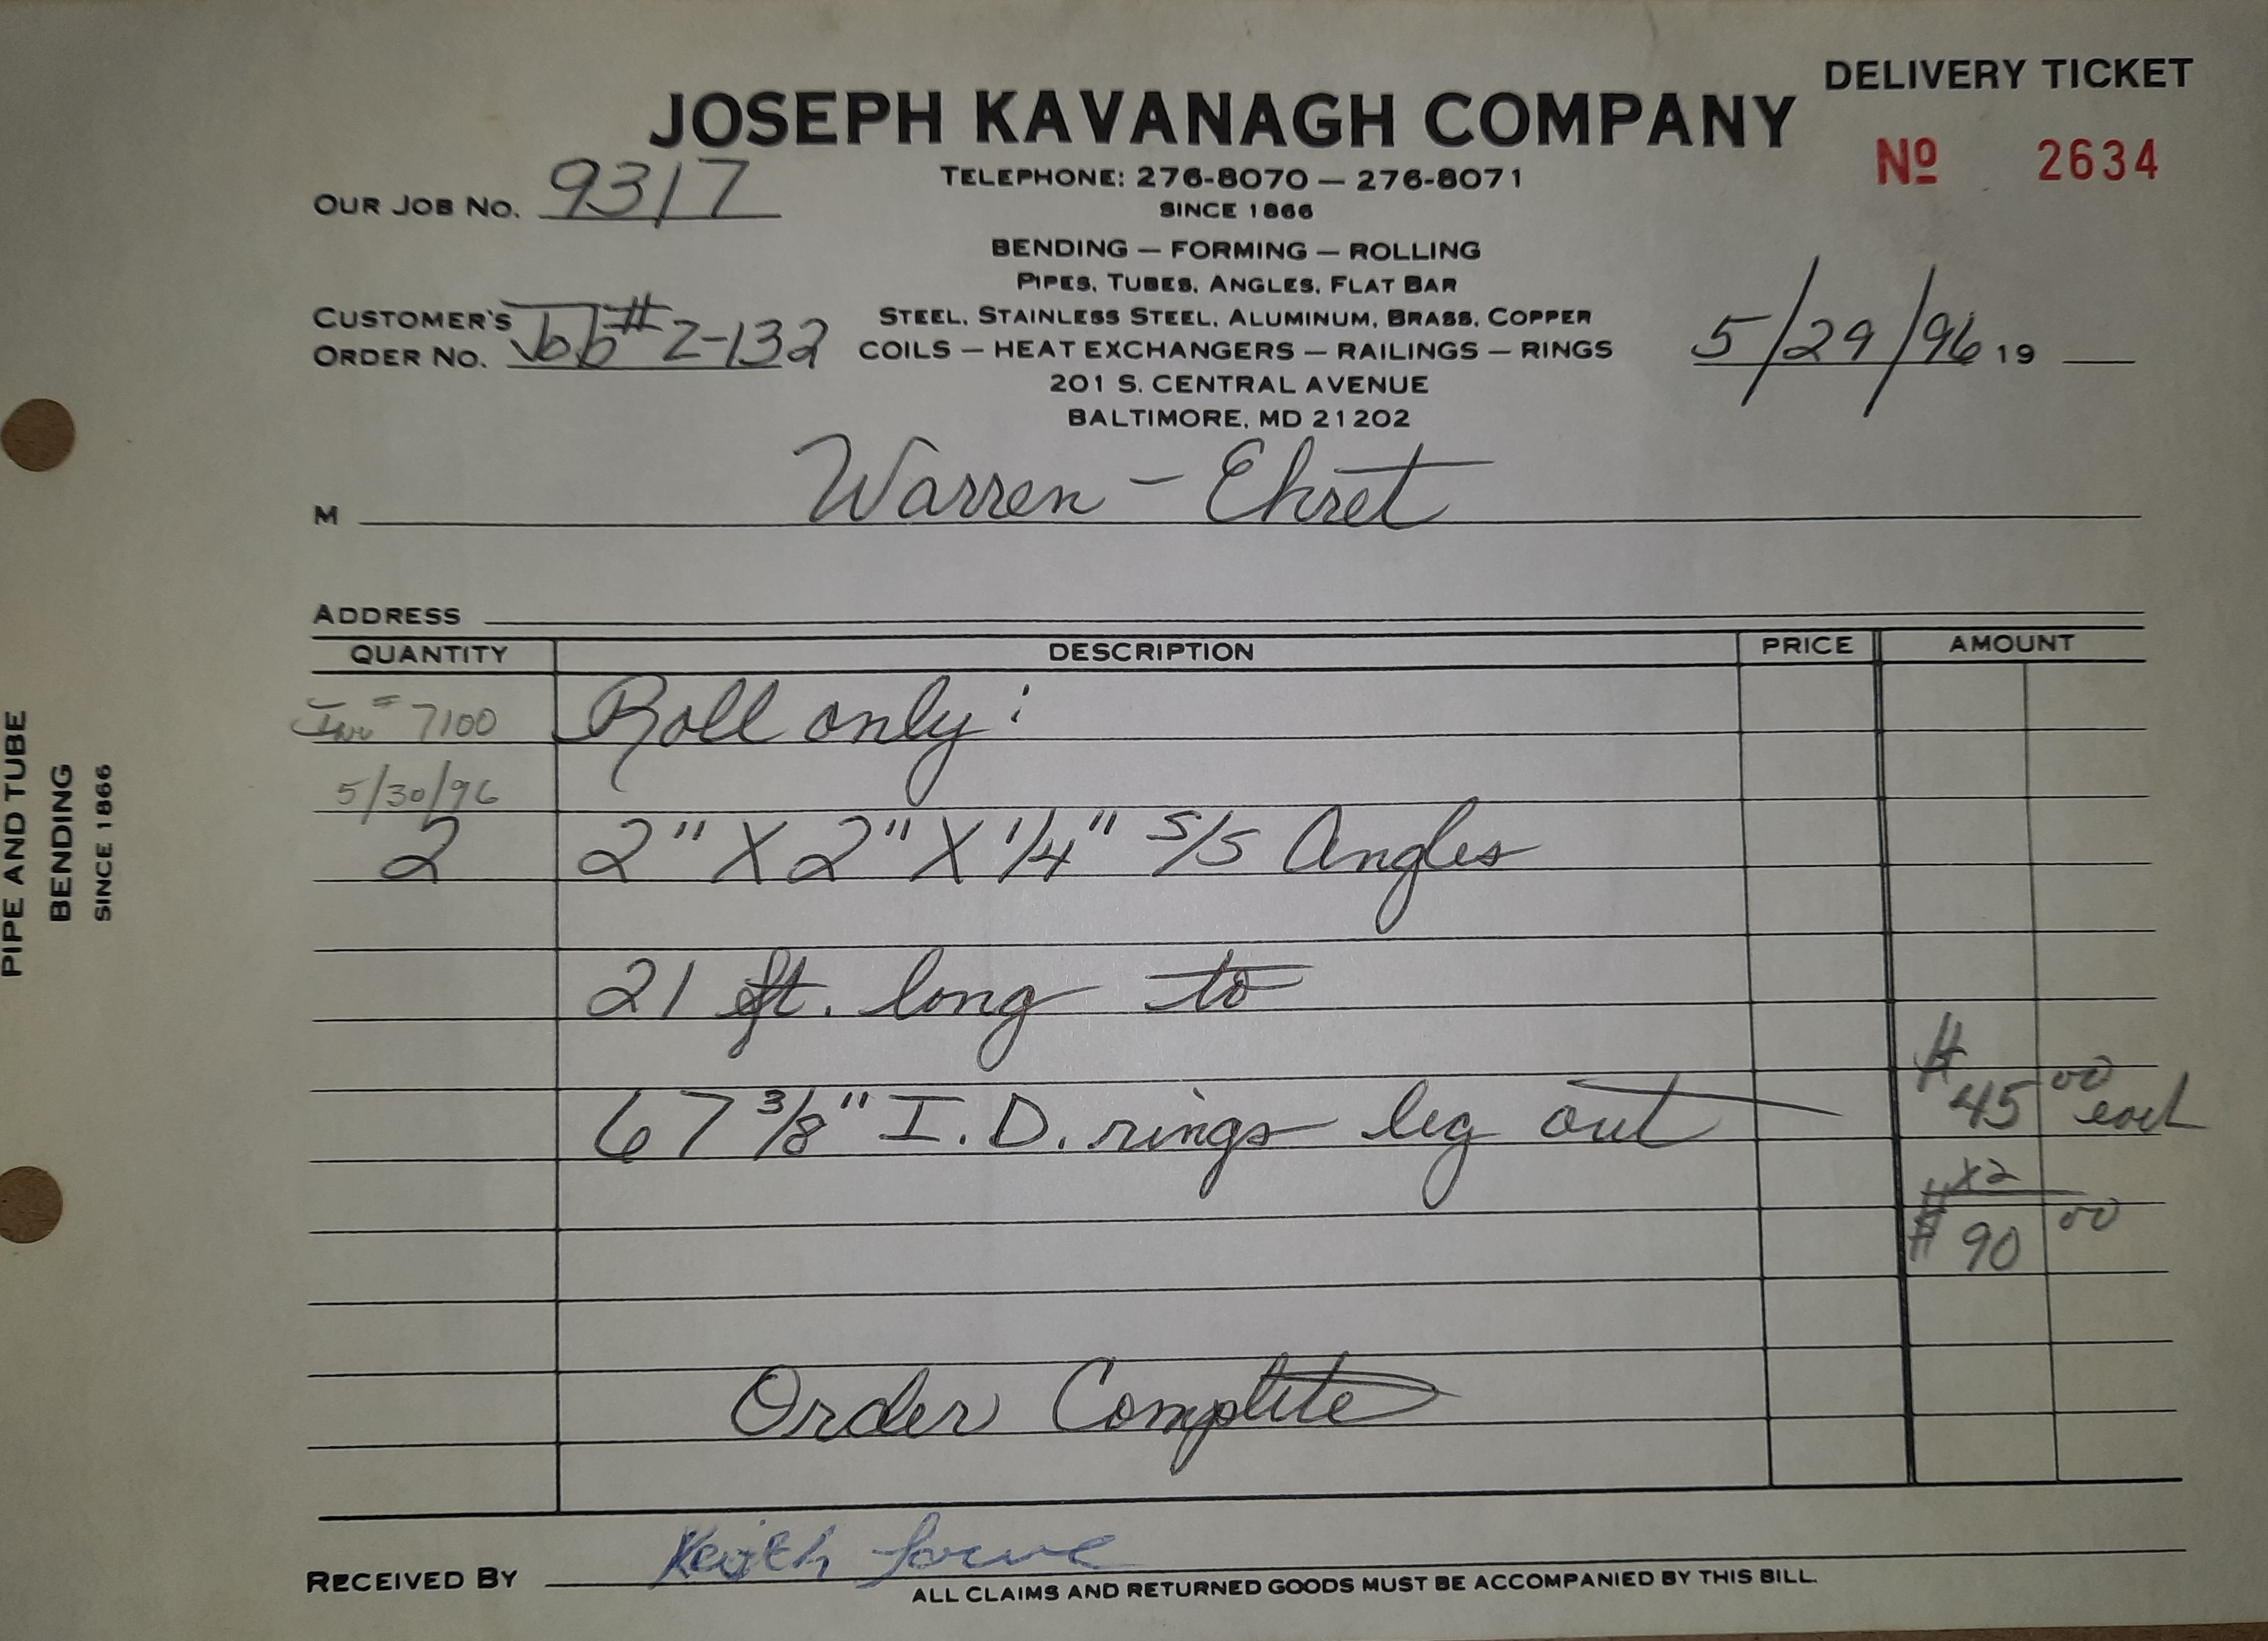 DELIVERY TICKET
JOSEPH KAVANAGH COMPANY
Nº 2634
TELEPHONE: 276-8070 — 276-8071
OUR JOB NO. 9317
SINCE 1866
BENDING — FORMING — ROLLING
PIPES, TUBES, ANGLES, FLAT BAR
CUSTOMER'S
ORDER NO. Job # Z-132
STEEL, STAINLESS STEEL, ALUMINUM, BRASS, COPPER
COILS — HEAT EXCHANGERS — RAILINGS — RINGS
5/29/96 19
201 S. CENTRAL AVENUE
BALTIMORE, MD 21202
M Warren - Ehret
ADDRESS
QUANTITY DESCRIPTION PRICE AMOUNT
Inv # 7100 Roll only:
5/30/96
2 2" X 2" X 1/4" S/S Angles
21 ft. long to
67 3/8" I.D. rings leg out $45 00 each
X2
$90 00
Order Complete
RECEIVED BY Keith
ALL CLAIMS AND RETURNED GOODS MUST BE ACCOMPANIED BY THIS BILL.
PIPE AND TUBE
BENDING
SINCE 1866